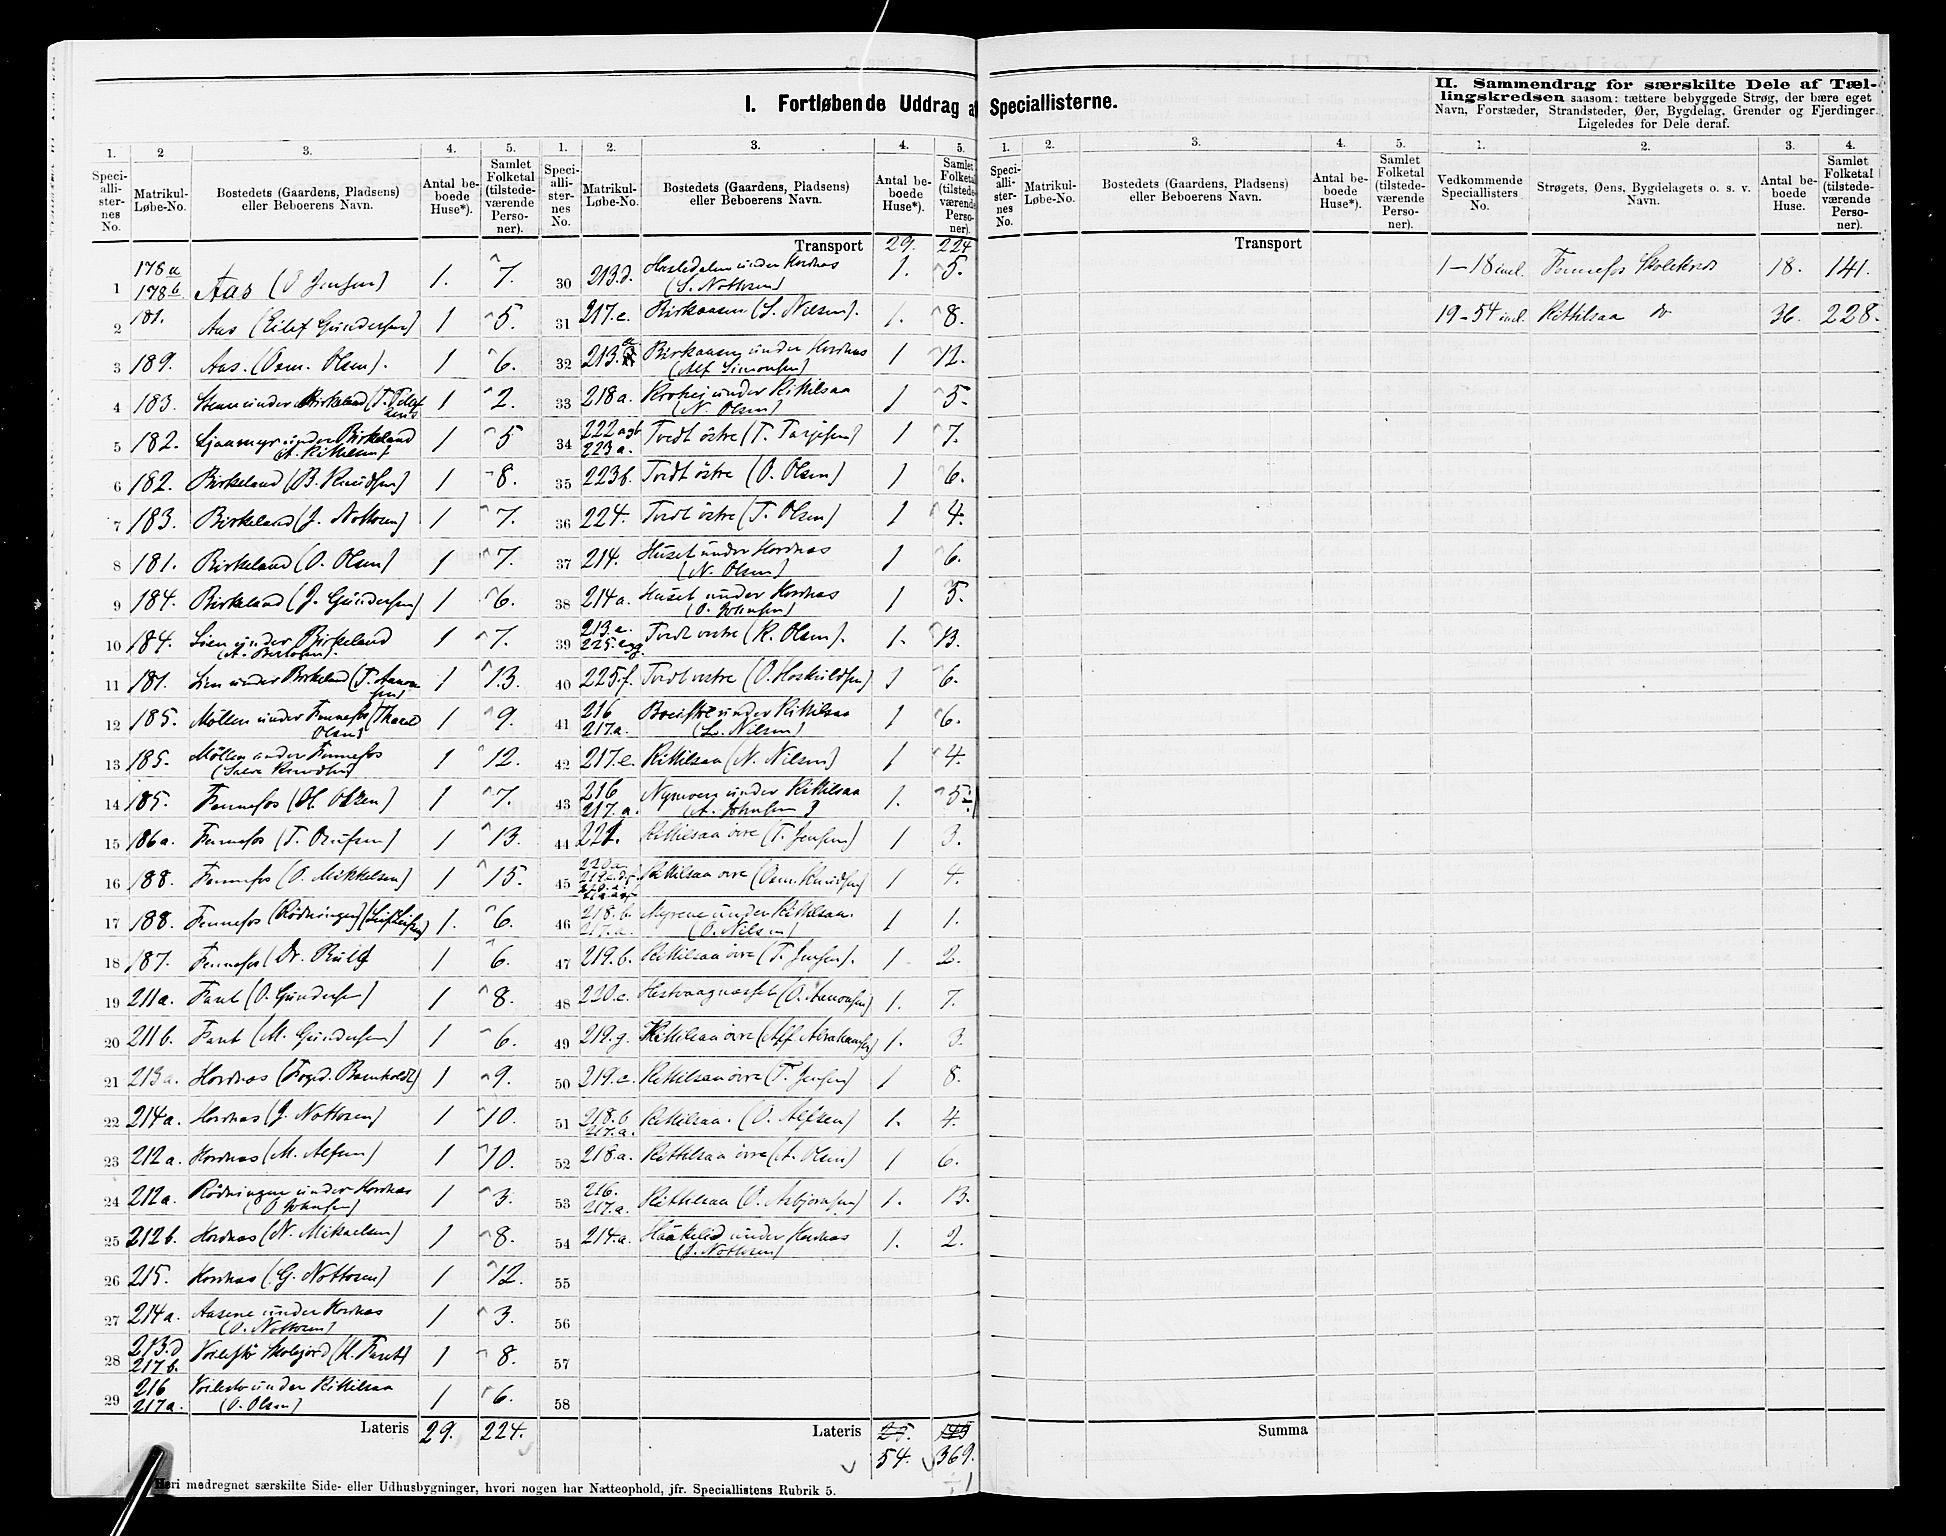 I. Fortløbende Uddrag af Speciallisterne.
II. Sammendrag for særskilte Dele af Tællingskredsen saasom: tættere bebyggede Strøg, der bære eget
Navn, Forstæder, Strandsteder, Øer, Bygdelag, Grender og Fjerdinger.
Ligeledes for Dele deraf.
1. 2 3. 4. 5. 1. 2. 3. 4. 5.
Speciallisternes No. Matrikul-Løbe-No. Bostedets (Gaardens, Pladsens) eller Beboerens Navn. Antal beboede Huse*). Samlet Folketal (tilstedeværende Personer).
Speciallisternes No. Matrikul-Løbe-No. Bostedets (Gaardens, Pladsens) eller Beboerens Navn. Antal beboede Huse*). Samlet Folketal (tilstedeværende Personer).
1 178a 178b Aas (O Jensen) 1. 7.
2 181. Aas (Eilef Gundersen) 1 5.
3 189. Aas. (Osm. Olsen). 1 6.
4 183. under Birkeland 1 2.
5 182. under Birkeland (A. Kittelsen) 1 5
6 182. Birkeland (B. Knudsen) 1 8.
7 183. Birkeland (J. Nottosen) 1 7.
8 181. Birkeland (O. Olsen) 1 7.
9 184. Birkeland (J. Gundersen) 1 6.
10 184. Lien under Birkeland 1 7.
11 181. Lien under Birkeland 1 13.
12 185. Möllen under Fennefos Olsen) 1 9.
13 185. Möllen under Fennefos 1 12.
14 185. Fennefos (H. Olsen) 1 7.
15 186a. Fennefos 1 13.
16 188. Fennefos (O. Mikkelsen) 1 15.
17 188. Fennefos (Rödningen) 1. 6.
18 187. Fennefos (Dr. 1 6.
19 211a. Faret (O. Gundersen) 1 8.
20 211b. Faret (M. Gundersen) 1 6.
21 213a. Hordnes (Foged. Barnholdt) 1 9.
22 214a. Hordnes (J. Nottosen) 1 10.
23 212a. Hordnes (M. Alfsen) 1 10.
24 212a. Rödningen under Hordnes 1 3.
25 212b. Hordnes (N. Mikaelsen) 1 8.
26 215. Hordnes (G. Nottosen) 1 12.
27 214a. Aasene under Hordnes (O. Nottosen) 1 3.
28 213.d 217b. Skolejord 1 8.
29 216 217a. under Kittilsaa (O. Olsen) 1 6.
Lateris 29. 224.
Transport 29. 224
30 213.d. under Hordnes (S. Nottosen) 1. 5.
31 217.c. Birkaasen (S. Nilsen). 1. 8.
32 213. Birkaasen under Hordnes (Alf Simonsen) 1 12.
33 218a. under Kittilsaa (N. Olsen) 1 5
34 223a. Tvedt östre (T. Tarjesen) 1 7.
35 223b. Tvedt östre (O. Olsen) 1 6.
36 224. Tvedt östre (T. Olsen) 1 4.
37 214. Huset under Hordnes (N. Olsen) 1 6.
38 214a. Huset under Hordnes (O. Johnsen) 1 5.
39 Tvedt vestre (K. Olsen). 1. 13.
40 225.f. Tvedt vestre (O. Hoskuldsen) 1 6.
41 216 217.a. under Kittilsaa Nilsen) 1 6.
42 217.e. Kittilsaa (N. Nilsen) 1 4.
43 216 217.a. under Kittilsaa (A. Johnsen) 1. 5
44 Kittilsaa övre (T. Jensen) 1 3.
45 Kittilsaa övre (Osm. Knudsen) 1 4.
46 218.b. 217.a. Myrene under Kittilsaa. (O. Nilsen) 1 1.
47 219.b. Kittilsaa övre (T. Jensen). 1 2.
48 220.c. (O. Aanonsen) 1. 7.
49 219.g. Kittilsaa övre 1. 3.
50 219.c. Kittilsaa övre (T. Jensen) 1 8.
51 218.b 217.a. Kittilsaa. (O. Alfsen) 1. 4.
52 218.a. Kittilsaa övre (A. Olsen) 1 6.
53 216. 217.a. Kittilsaa (O. Asbjörnsen) 1. 13.
54 214.a. Haakelid under Hordnes Nottosen) 1. 2.
55
56
57
58
Lateris 25. 145
54. 369.
Heri medregnet særskilte Side- eller Udhusbygninger, hvori nogen har Natteophold, jfr. Speciallistens Rubrik 5.
1. 2. 3. 4. 5. 1. 2. 3. 4.
Speciallisternes No. Matrikul-Løbe-No. Bostedets (Gaardens, Pladsens) eller Beboerens Navn. Antal beboede Huse*). Samlet Folketal (tilstedeværende Personer).
Vedkommende Speciallisters No. Strøgets, Øens, Bygdelagets o. s. v. Navn. Antal beboede Huse. Samlet Folketal (tilstedeværende Personer).
Transport
1–18 incl. Fennefos Skolekreds 18. 141.
19–54 incl. Kittilsaa do 36. 228.
Summa